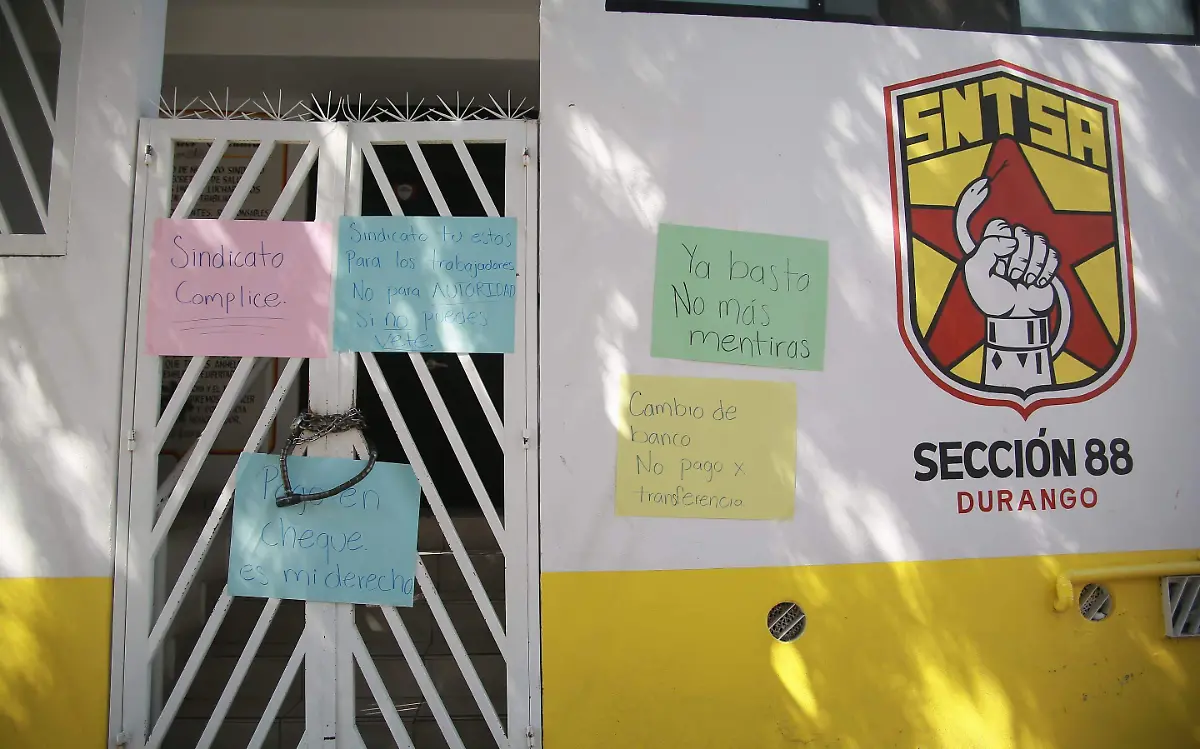 Sindicato
Complice.
Sindicato tu estas
para los trabajadores
No para AUTORIDAD
Si no puedes
vete.
Pago en
cheque.
es mi derecho
Ya basta
No más
mentiras
Cambio de
banco
No pago x
transferencia
SNTSA
SECCIÓN 88
DURANGO